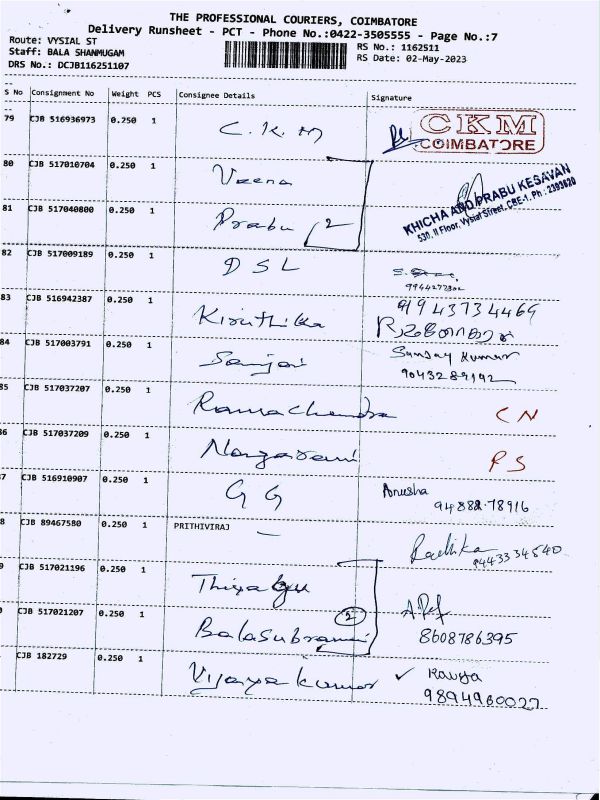 THE PROFESSIONAL COURIERS, COIMBATORE
Delivery Runsheet - PCT - Phone No.:0422-3505555 - Page No.:7
Route: VYSIAL ST
Staff: BALA SHANMUGAM
DRS No.: DCJB116251107
RS No.: 1162511
RS Date: 02-May-2023
S No Consignment No Weight PCS Consignee Details Signature
79 CJB 516936973 0.250 1 C.K.M CKM COIMBATORE
80 CJB 517010704 0.250 1 Veena
KHICHA AND PRABU KESAVAN
530, II Floor, Vysial Street, CBE-1. Ph : 2393620
81 CJB 517040800 0.250 1 Prabu 2
82 CJB 517009189 0.250 1 DSL
9944272302
83 CJB 516942387 0.250 1 Kiruthika 9943734469
84 CJB 517003791 0.250 1 Sanjai Sanjay Kumar
9043289192
85 CJB 517037207 0.250 1 Ramachandra CN
86 CJB 517037209 0.250 1 PS
87 CJB 516910907 0.250 1 GG Anusha
94882-78916
8 CJB 89467580 0.250 1 PRITHIVIRAJ Radhika
9443334540
9 CJB 517021196 0.250 1 Thiyagu
0 CJB 517021207 0.250 1 Balasubramani 2
8608786395
CJB 182729 0.250 1 Vijayakumar ✓ Kavya
9894960027